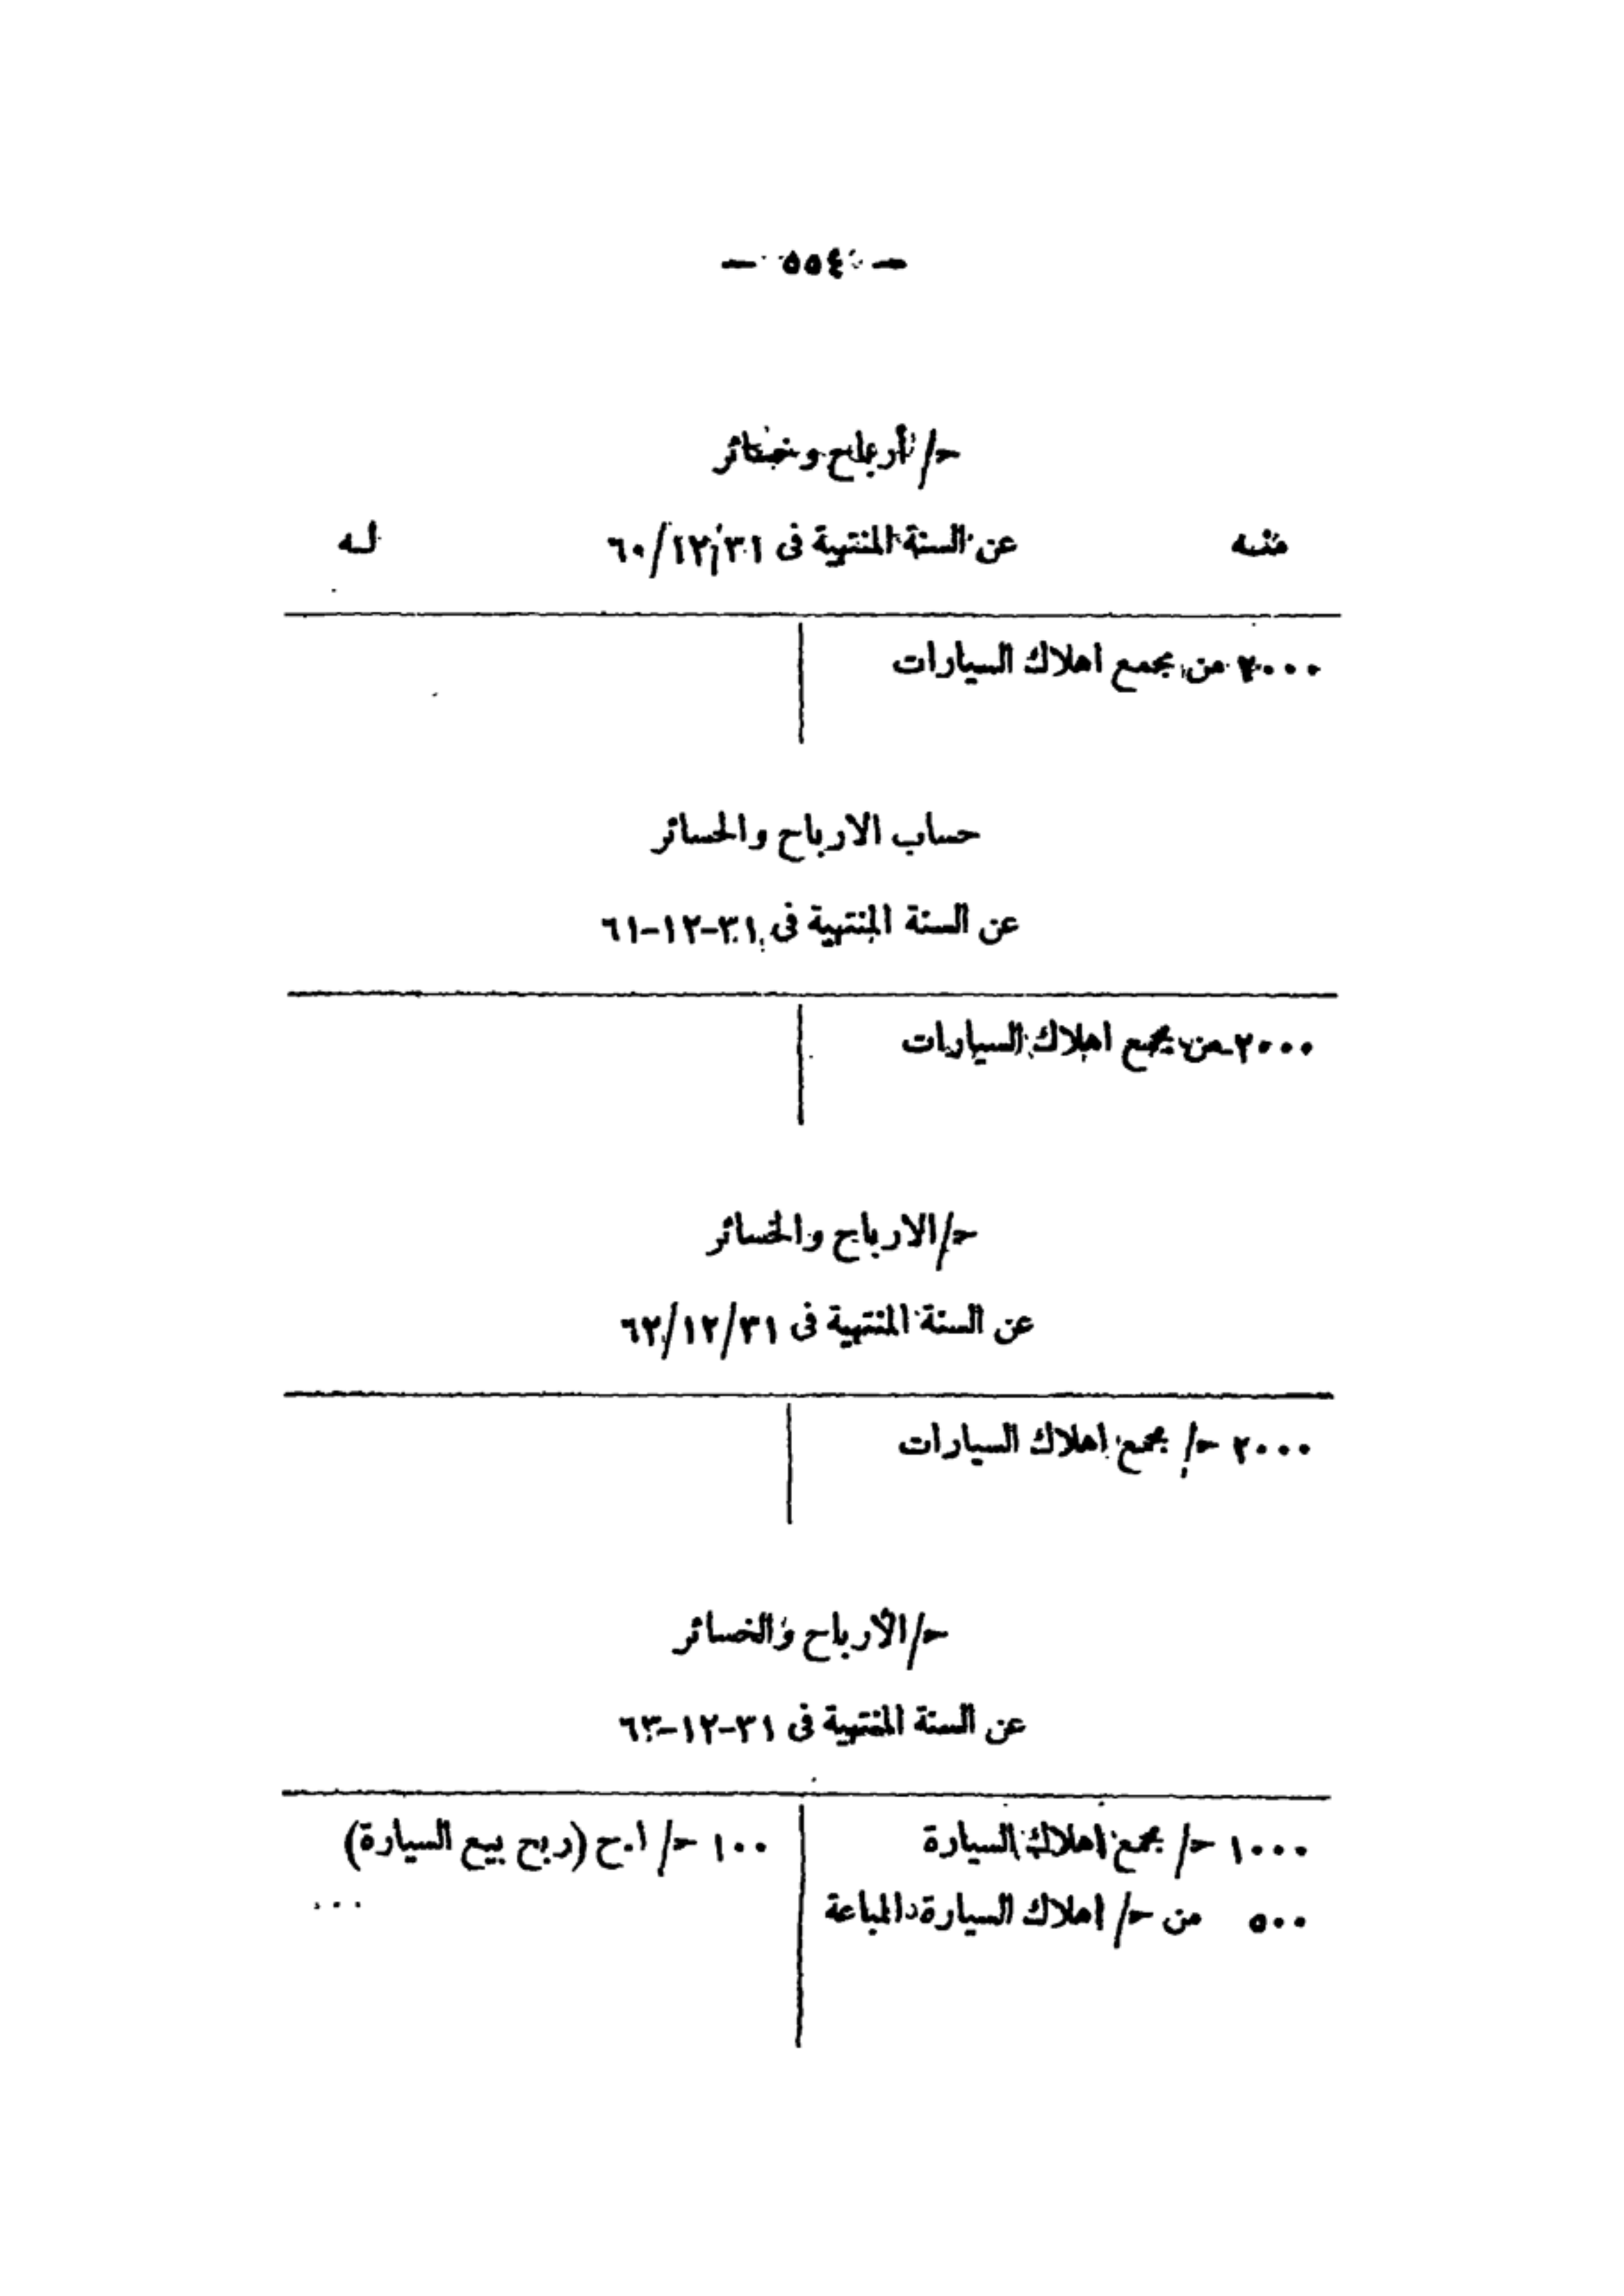 — ٥٥٤ —
ح/ أرباح وخسائر
منه عن السنة المنتهية فى ٦٠/١٢/٣١ له
٢٠٠٠ من مجمع اهلاك السيارات
حساب الارباح والخسائر
عن السنة المنتهية فى ٣١-١٢-٦١
٢٠٠٠ من مجمع اهلاك السيارات
ح/ الارباح والخسائر
عن السنة المنتهية فى ٦٢/١٢/٣١
٢٠٠٠ ح/ مجمع اهلاك السيارات
ح/ الأرباح والخسائر
عن السنة المنتهية فى ٣١-١٢-٦٣
١٠٠٠ ح/ مجمع اهلاك السيارة ١٠٠ ح/ ا.ح (ربح بيع السيارة)
٥٠٠ من ح/ اهلاك السيارة المباعة ...